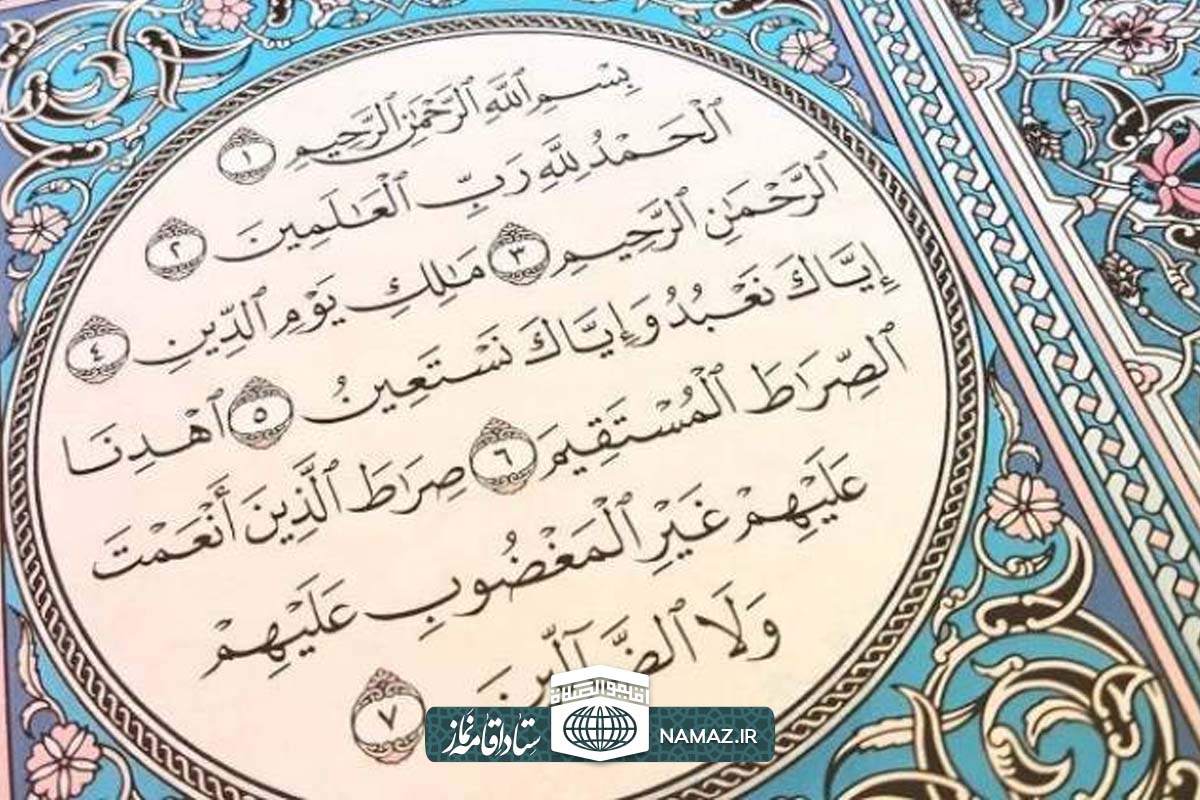 بِسْمِ ٱللَّهِ ٱلرَّحْمَٰنِ ٱلرَّحِيمِ ١
ٱلْحَمْدُ لِلَّهِ رَبِّ ٱلْعَٰلَمِينَ ٢
ٱلرَّحْمَٰنِ ٱلرَّحِيمِ ٣ مَٰلِكِ يَوْمِ ٱلدِّينِ ٤
إِيَّاكَ نَعْبُدُ وَإِيَّاكَ نَسْتَعِينُ ٥ ٱهْدِنَا
ٱلصِّرَٰطَ ٱلْمُسْتَقِيمَ ٦ صِرَٰطَ ٱلَّذِينَ أَنْعَمْتَ
عَلَيْهِمْ غَيْرِ ٱلْمَغْضُوبِ عَلَيْهِمْ
وَلَا ٱلضَّآلِّينَ ٧
اقیموالصلاة
ستاد اقامه نماز
NAMAZ.IR